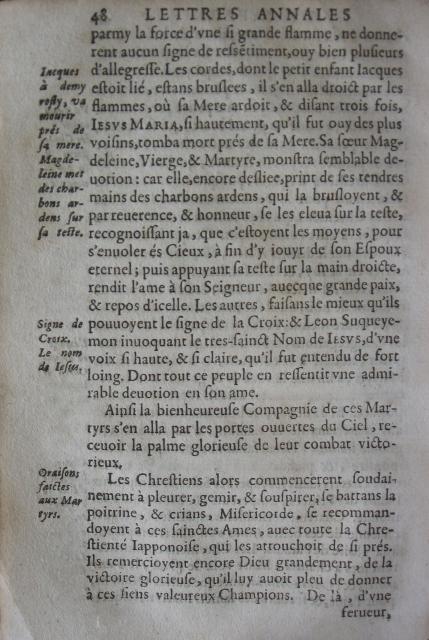 48 LETTRES ANNALES
parmy la force d'vne si grande flamme, ne donne-
rent aucun signe de ressẽtiment, ouy bien plusieurs
d'allegresse. Les cordes, dont le petit enfant Iacques
estoit lié, estans bruslees, il s'en alla droict par les
flammes, où sa Mere ardoit, & disant trois fois,
IESVS MARIA, si hautement, qu'il fut ouy des plus
voisins, tomba mort prés de sa Mere. Sa sœur Mag-
deleine, Vierge, & Martyre, monstra semblable de-
uotion : car elle, encore desliee, print de ses tendres
mains des charbons ardens, qui la brusloyent, &
par reuerence, & honneur, se les eleua sur la teste,
recognoissant ja, que c'estoyent les moyens, pour
s'enuoler és Cieux, à fin d'y iouyr de son Espoux
eternel ; puis appuyant sa teste sur la main droicte,
rendit l'ame à son Seigneur, auecque grande paix,
& repos d'icelle. Les autres, faisans le mieux qu'ils
pouuoyent le signe de la Croix: & Leon Suqueye-
mon inuoquant le tres-sainct Nom de IESVS, d'vne
voix si haute, & si claire, qu'il fut entendu de fort
loing. Dont tout ce peuple en ressentit vne admi-
rable deuotion en son ame.
Ainsi la bienheureuse Compagnie de ces Mar-
tyrs s'en alla par les portes ouuertes du Ciel, re-
ceuoir la palme glorieuse de leur combat victo-
rieux.
Les Chrestiens alors commencerent soudai-
nement à pleurer, gemir, & souspirer, se battans la
poitrine, & crians, Misericorde, se recomman-
doyent à ces sainctes Ames, auec toute la Chre-
stienté Iapponoise, qui les attouchoit de si prés.
Ils remercioyent encore Dieu grandement, de la
victoire glorieuse, qu'il luy auoit pleu de donner
à ces siens valeureux Champions. De là, d'vne
ferueur,
Iacques
à demy
rosty, va
mourir
prés de
sa mere.
Magde-
leine met
des char-
bons ar-
dens sur
sa teste.
Signe de
Croix.
Le nom
de Iesus.
Oraisons
faictes
aux Mar
tyrs.